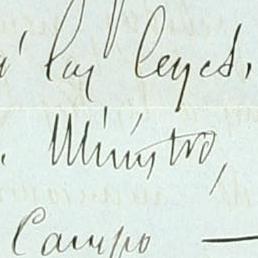 á las leyes.
Ministro,
Campo —